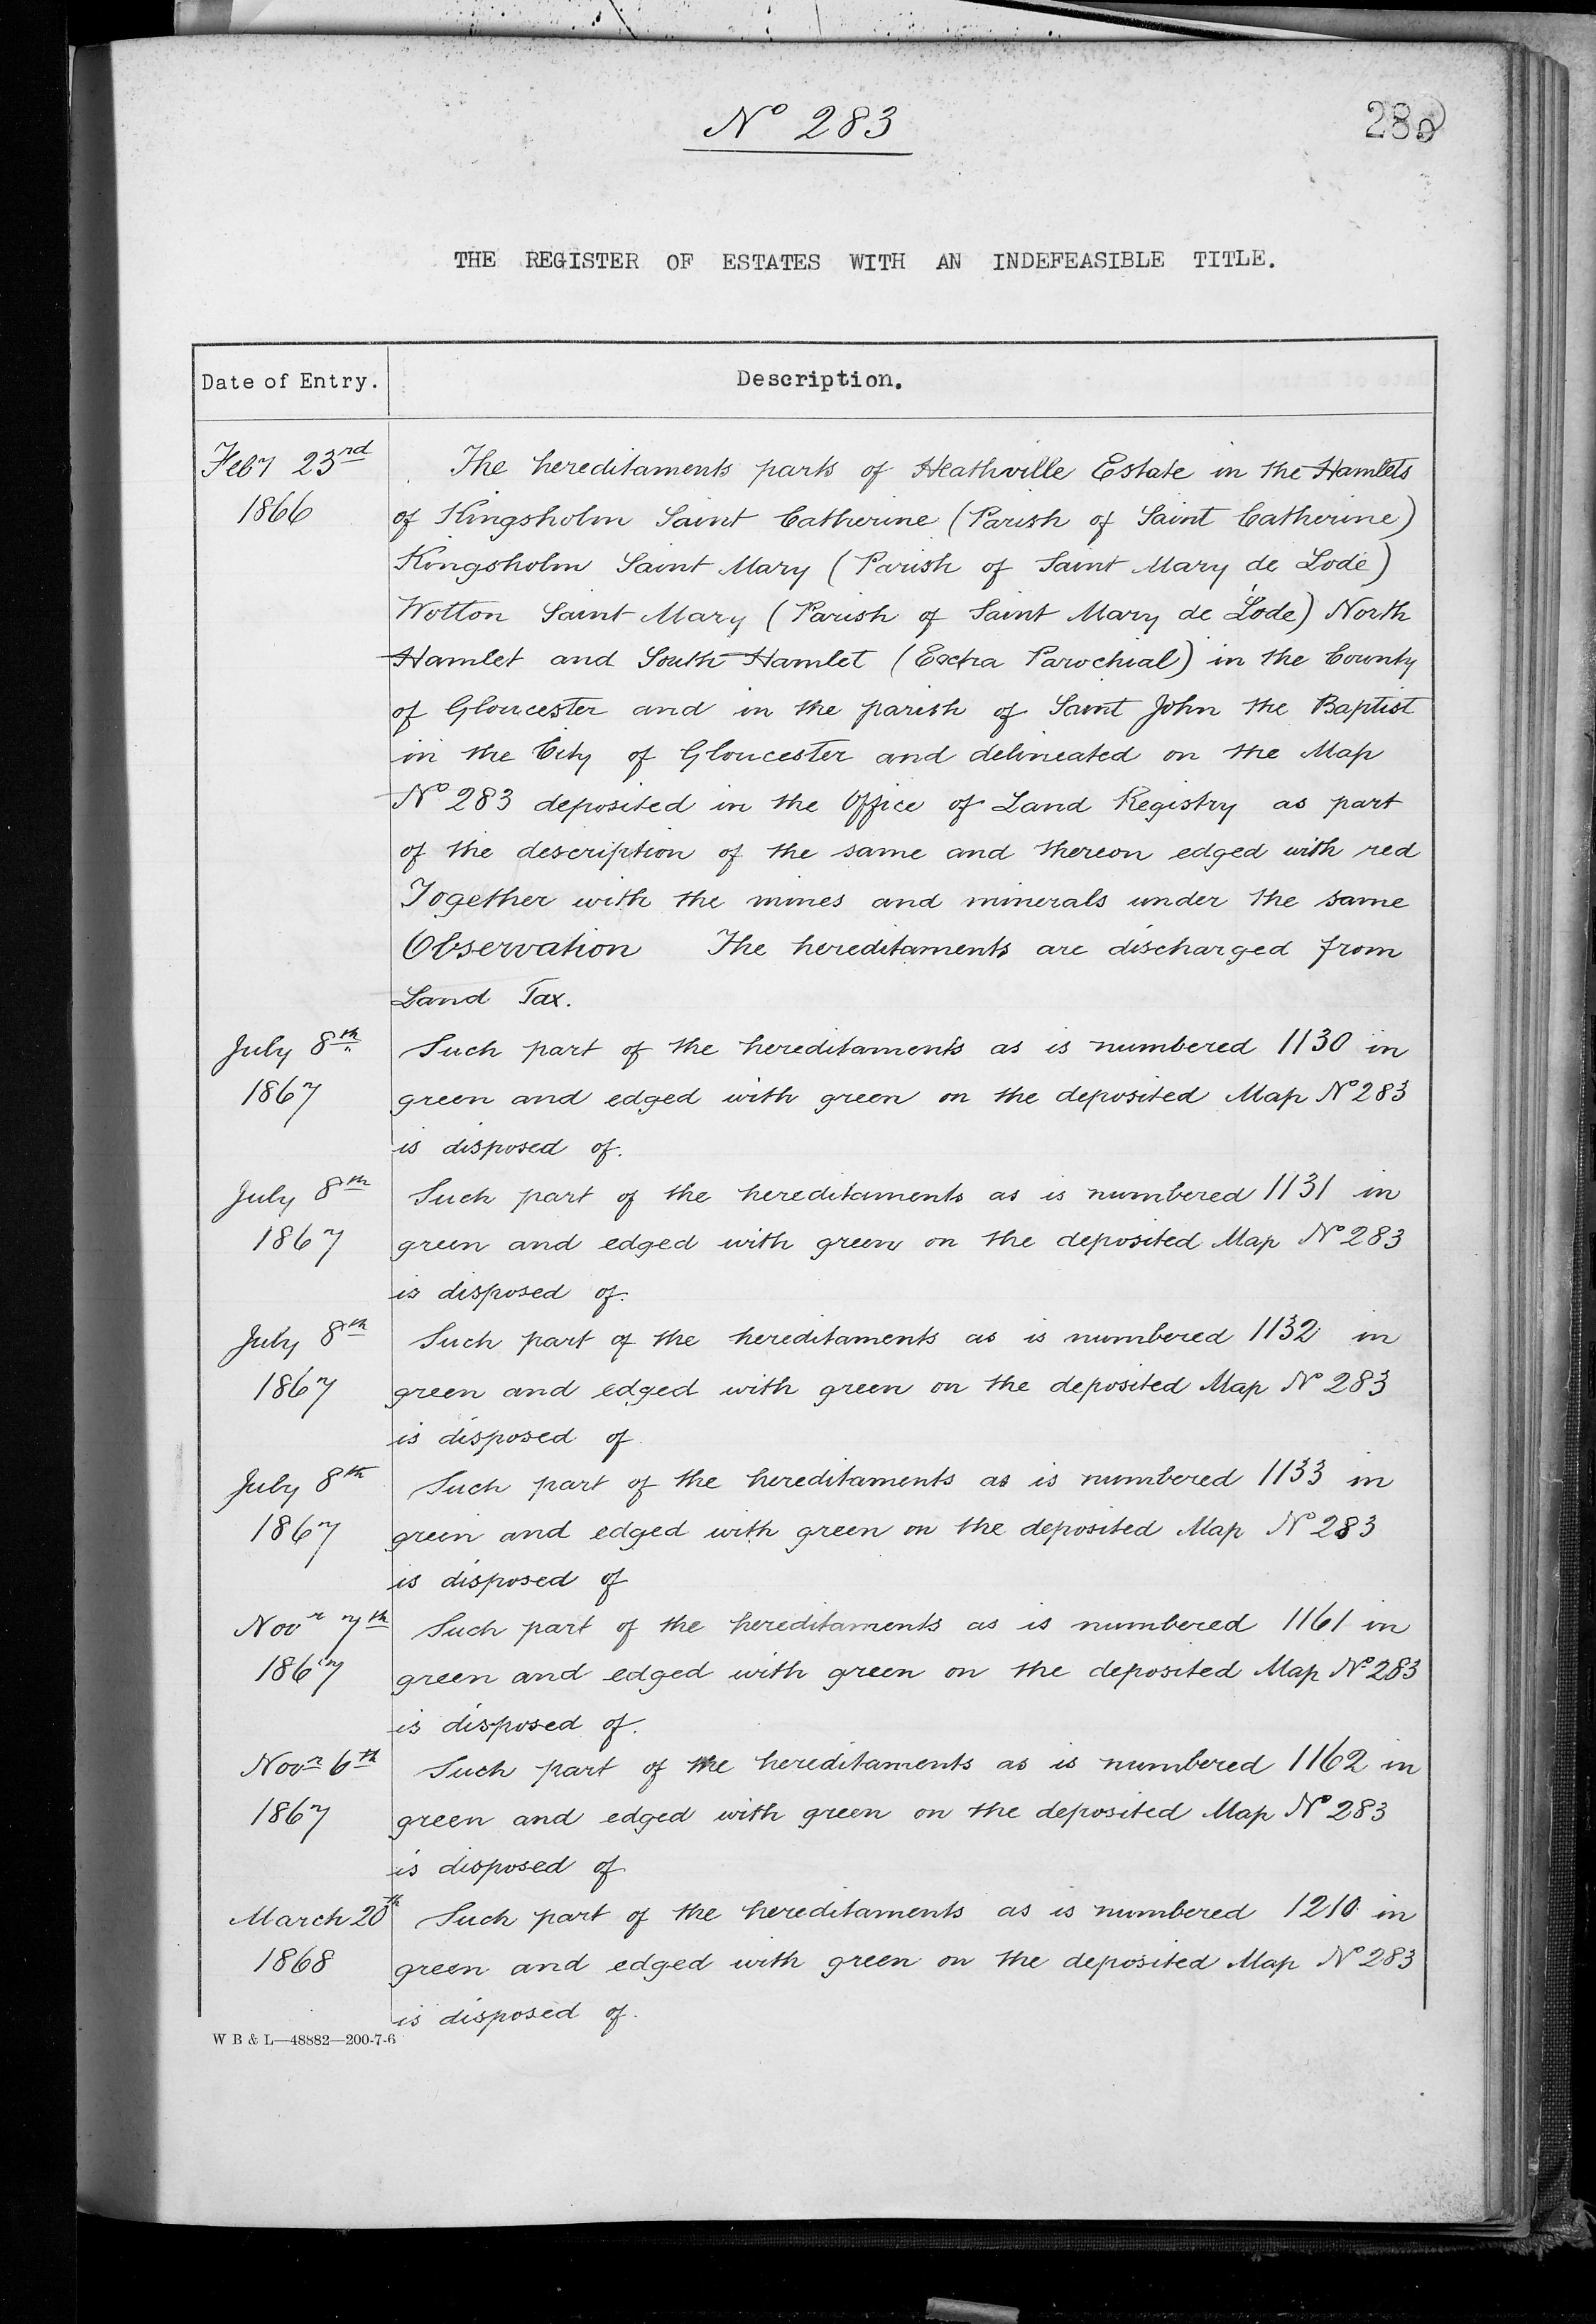 Nº 283
THE REGISTER OF ESTATES WITH AN INDEFEASIBLE TITLE.
Date of Entry.
Description.
Feby 23rd
1866
The hereditaments parts of Heathville Estate in the Hamlets
of Kingsholm Saint Catherine (Parish of Saint Catherine)
Kingsholm Saint Mary (Parish of Saint Mary de Lode)
Wotton Saint Mary (Parish of Saint Mary de Lode) North
Hamlet and South Hamlet (Extra Parochial) in the County
of Gloucester and in the parish of Saint John the Baptist
in the City of Gloucester and delineated on the Map
Nº 283 deposited in the Office of Land Registry as part
of the description of the same and thereon edged with red
Together with the mines and minerals under the same
Observation The hereditaments are discharged from
Land Tax.
July 8th
1867
Such part of the hereditaments as is numbered 1130 in
green and edged with green on the deposited Map Nº 283
is disposed of.
July 8th
1867
Such part of the hereditaments as is numbered 1131 in
green and edged with green on the deposited Map Nº 283
is disposed of.
July 8th
1867
Such part of the hereditaments as is numbered 1132 in
green and edged with green on the deposited Map Nº 283
is disposed of
July 8th
1867
Such part of the hereditaments as is numbered 1133 in
green and edged with green on the deposited Map Nº 283
is disposed of
Novr 7th
1867
Such part of the hereditaments as is numbered 1161 in
green and edged with green on the deposited Map Nº 283
is disposed of.
Novr 6th
1867
Such part of the hereditaments as is numbered 1162 in
green and edged with green on the deposited Map Nº 283
is disposed of
March 20th
1868
Such part of the hereditaments as is numbered 1210 in
green and edged with green on the deposited Map Nº 283
is disposed of.
W B & L—48882—200-7-6